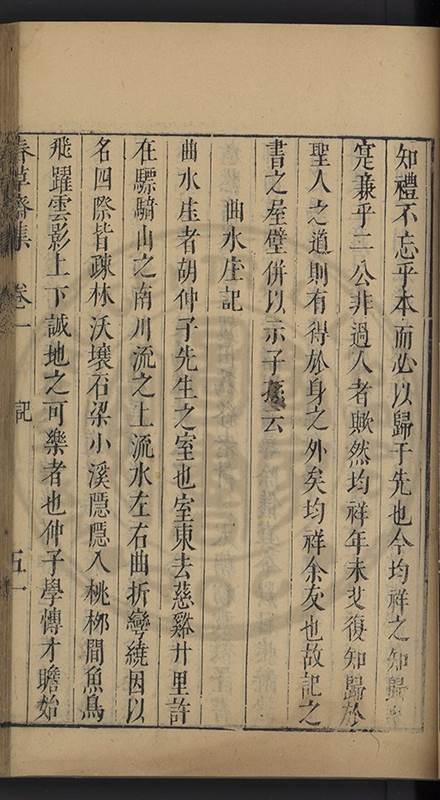 知禮不忘乎本而必以歸于先也今均祥之知歸
寔兼乎二公非過人者歟然均祥年未艾復知歸於
聖人之道則有得於身之外矣均祥余友也故記之
書之屋壁併以示子孫云
曲水庄記
曲水庄者胡仲子先生之室也室東去慈谿廿里許
在驃騎山之南川流之上流水左右曲折彎繞因以
名四際皆疎林沃壤石梁小溪隱隱入桃柳間魚鳥
飛躍雲影上下誠地之可樂者也仲子學博才贍始
春草齋集 卷一 記 五一